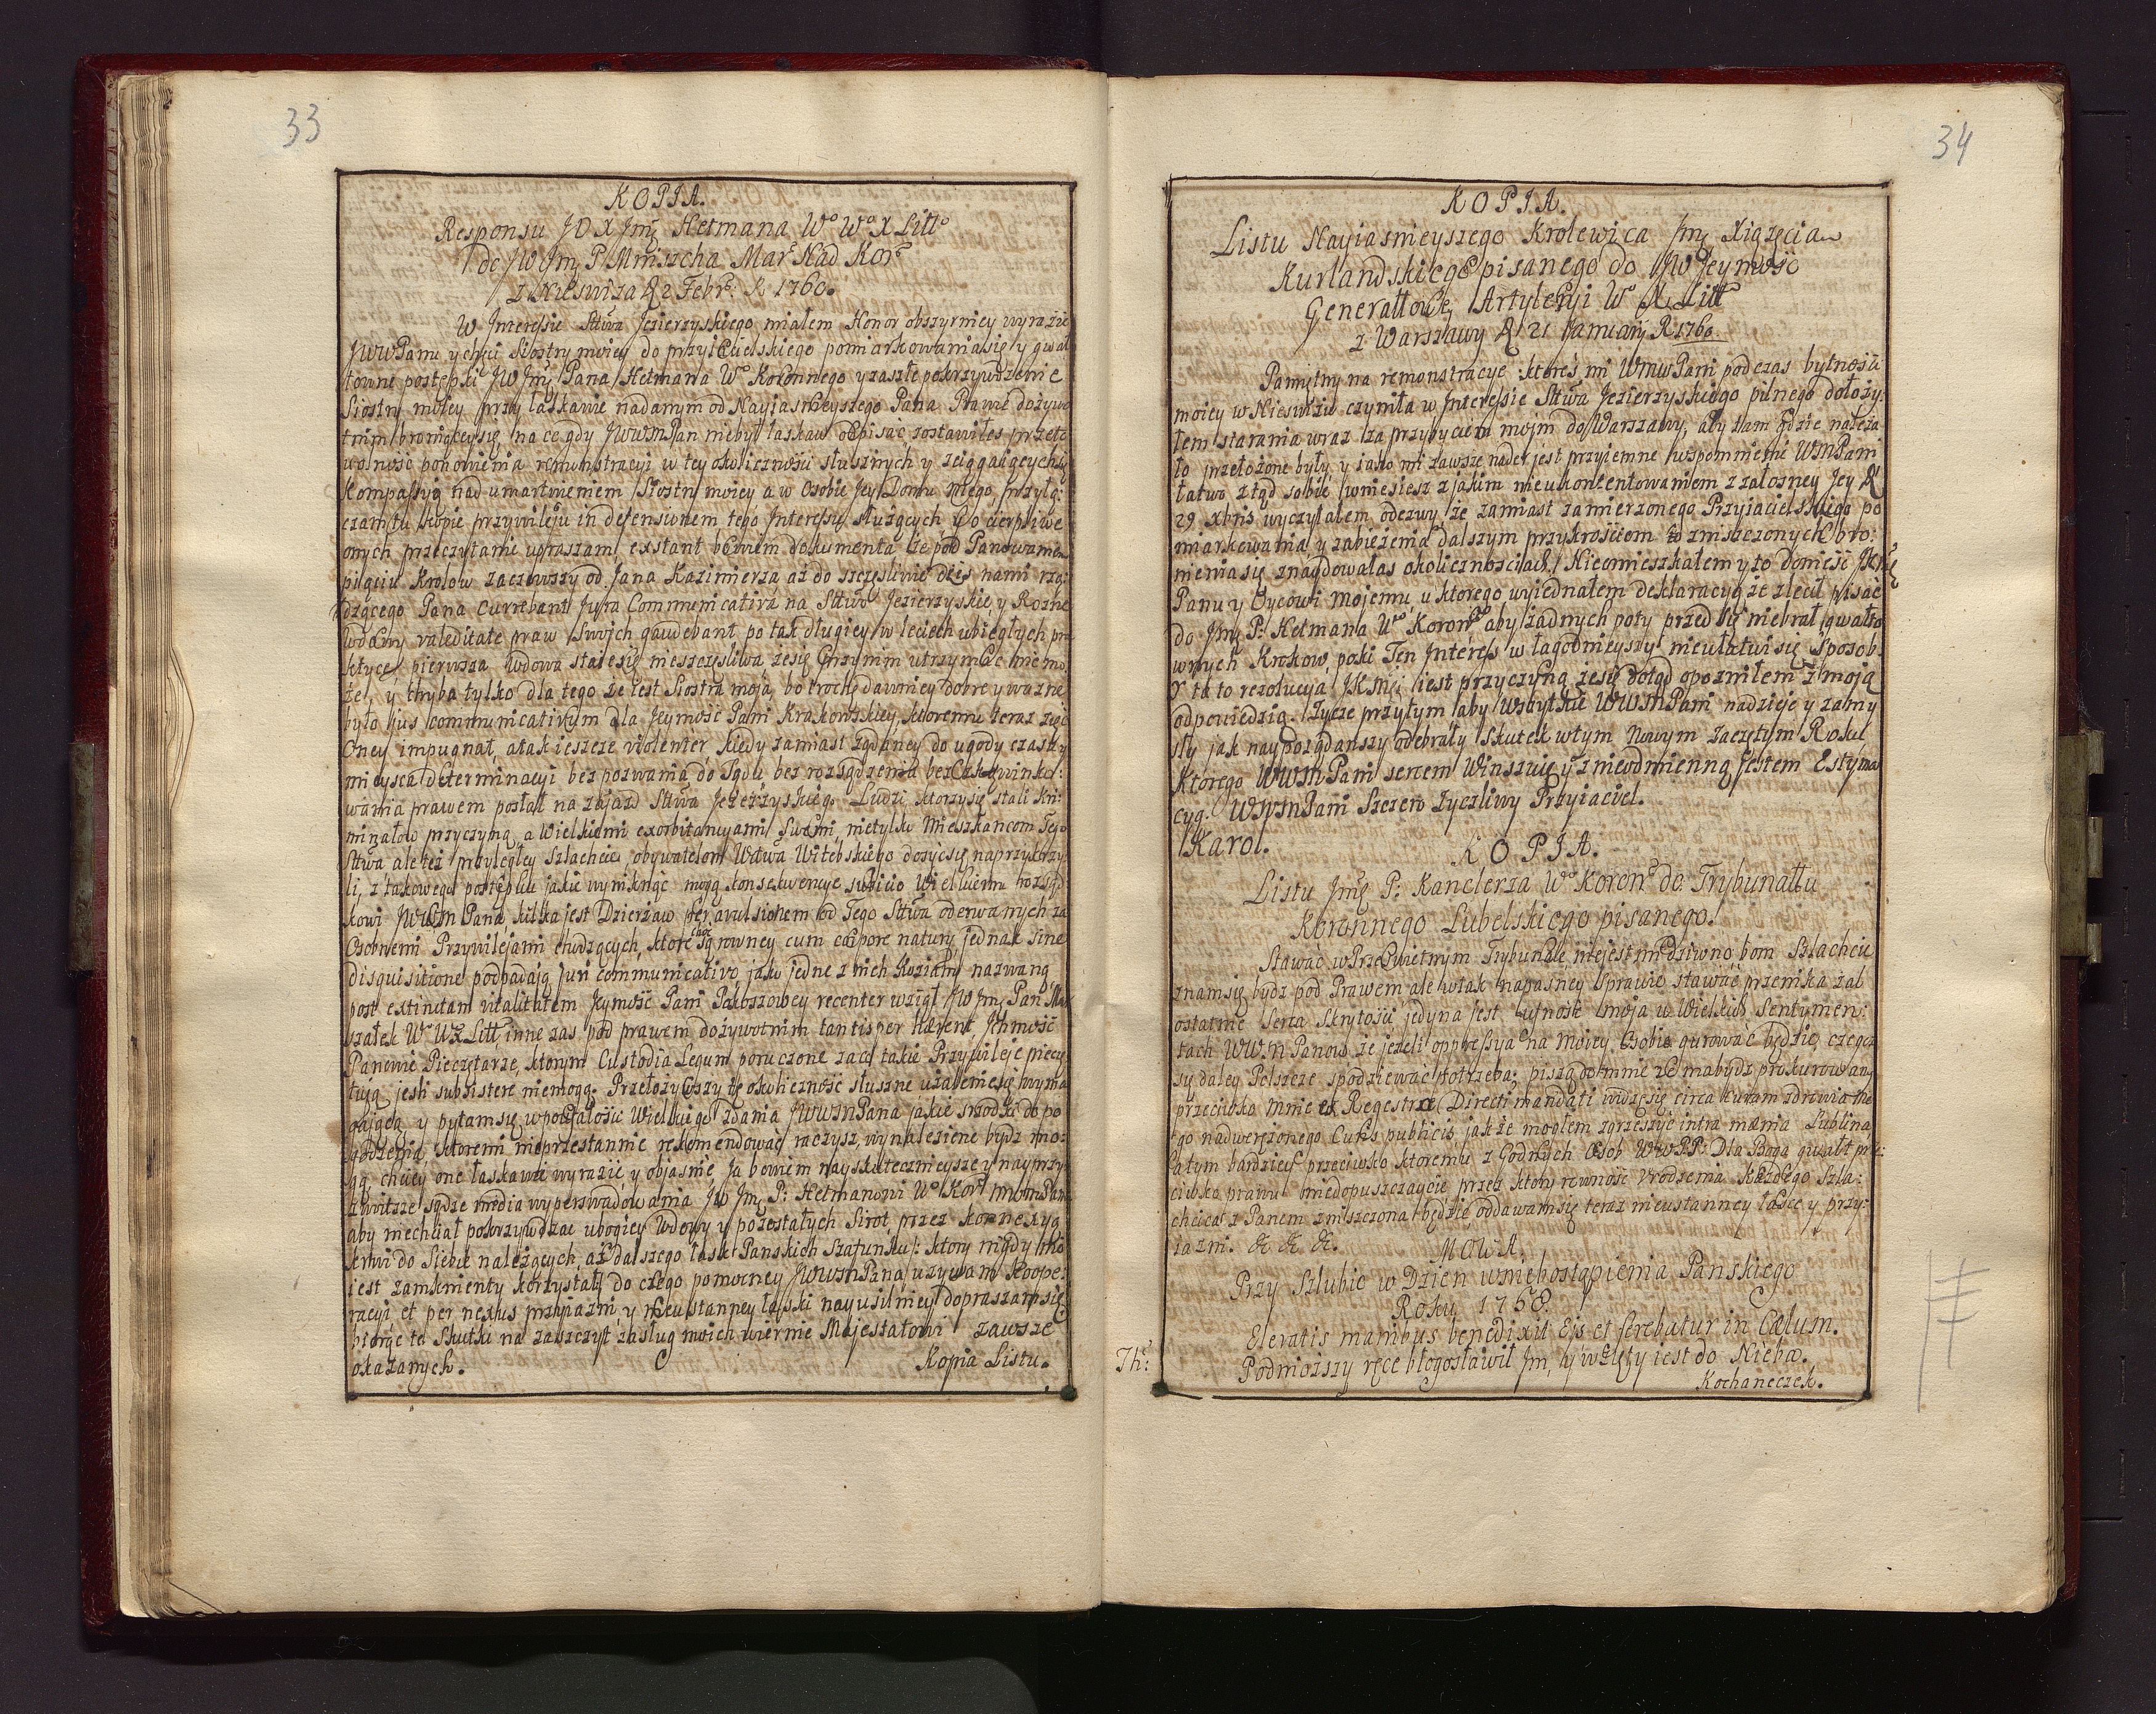 33
KOPIA.
Responsu JO X Jmć Hetmana Wº Wº X Littº
do JW Jmć P Mniszcha Mar: Nad Korº
z Nieswiza D 2 Febr: R 1760.
W Interessie Sttwa Jezierzyskiego miałem Honor obszyrniey wyrazić
JWWPanu y chęci Siostry moiey do przyiacielskiego pomiarkowania się y gwał
towne postępki JW Jmć Pana Hetmana Wº Koronnego y zaszłe pokrzywdzenie
Siostry moiey przy łaskawie nadanym od Nayiasnieyszego Pana Prawie dożywo
tnim broniącey się na co gdy JWWMPan niebył łaskaw odpisać zostawiłeś przeto
wolność ponowienia remonstracyi w tey okoliczności słusznych y sciągaiących się
Kompassyą nad umartwieniem Siostry moiey a w Osobie Jey Domu mego, przyłą:
czam tu kopie przywileju in defensionem tego Interessu służących y o cierpliwe
onych przeczytanie upraszam, exstant bowiem dokumenta że pod Panowaniem
pięciu Krolow zacząwszy od Jana Kazimierza aż do szczęsliwie dziś nami rzą:
dzącego Pana currebant Jura Communicativa na Sttwo Jezierzyskie, y Rożne
Wdowy validitate praw Swych gaudebant po tak długiey w leciech ubiegłych pra
ktyce, pierwsza Wdowa staie się nieszczęsliwa że się przy nim utrzymać niemo:
że, y chyba tylko dla tego że iest Siostra moja, bo trochę dawniey dobre y ważne
było jus communicativum dla Jeymość Pani Krakowskiey, ktoremu teraz zięć
Oney impugnat, a tak ieszcze violenter kiedy zamiast żądaney do ugody czasu y
mieysca determinacyi bez pozwania do Sądu bez rozsądzenia bez
wania prawem posłał na zajazd Sttwa Jezierzyskiego Ludzi, ktorzy się stali kri:
minałow przyczyną, a Wielkiemi exorbitancyami Swemi, nietylko Mieszkancom Tego
Sttwa ale też przyległey Szlachcie, obywatelom Wdtwa Witebskiego dosyć się naprzykrzy
li, z takowego postępku jakie wyniknąć mogą konsekwencye subiicio Wielkiemu rozsąd
kowi JWWMPana kilka jest Dzierżaw per avulsionem od Tego Sttwa oderwanych za
Osobnemi Przywilejami chodzących, ktore choć są rowney cum corpore natury jednak sine
disquisitione podpadają juri communicativo, jako jedne z nich Koziany nazwaną
post extinctam vitalitatem Jeymość Pani Pakoszowey recenter wziął JW Jmć Pan Mar
szałek Wº WX Litt, inne zas pod prawem dożywotnim tantisper haerent, Jchmość
Panowie Pieczętarze, ktorym Custodia Legum poruczone za co takie Przywileje pieczę
tują jesli subsistere niemogą; Przełożywszy tę okoliczność słuszne użalenie się wyma
gającą y pytam się w poufałości Wielkiego zdania JWWMPana jakie srzodki do po
godzenia, ktoremi nieprzestannie rekomendować raczysz, wynalezione bydz mo:
gą, chciey one łaskawie wyrazić y objasnić, ja bowiem nayskutecznieysze y nayprzy
zwoitsze sądze media wyperswadowania JW Jmć P: Hetmanowi Wº Korº MWMPanu
aby niechciał pokrzywdzać ubogiey Wdowy y pozostałych Sirot przez konnexyą
krwi do Siebie należących, aż dalszego łask Panskich Szafunku: ktory nigdy nie
iest zamknienty korzystał, do czego pomocney JWWMPana używam koope:
racyi et per nexus przyiazni y nieustanney łaski nayusilniey dopraszam się
biorąc to Skutku na zaszczyt zasług moich wiernie Majestatowi zawsze
okazanych.
Kopia Listu.
34
KOPIA.
Listu Nayiasnieyszego Krolewica Jmć Xiążęcia
Kurlandskiego pisanego do JW Jeymość
Generałłowey Artyleryi Wº X Litt
z Warszawy D 21 Januarij R 1760.
Pamiętny na remonstracye ktoreś mi WMWPani podczas bytności
moiey w Nieswiżu czyniła w Interessie Sttwa Jezierzyskiego pilnego dołoży:
łem starania wraz za przybyciem mojm do Warszawy, aby tam gdzie należa
ło przełożone były, y jako mi zawsze nader jest przyiemne wspomnienie WMPani
łatwo ztąd sobie wniesiesz z jakim nieukontentowaniem z załosney Jey D
29 Xbris wyczytałem odezwy że zamiast zamierzonego Przyjacielskiego po
miarkowania y zabieżenia dalszym przykrościom w zniszczonych bro:
nienia się znaydowałas okolicznościach, Nieomieszkałem y to donieść JKMć
Panu y Oycowi mojemu, u ktorego wyiednałem deklaracyą że zlecił pisać
do Jmć P: Hetmana Wº Koronº aby żadnych poty przed się niebrał gwałto
wnych Krokow, poki Ten Interess w łagodnieyszy nieułatwi się Sposob.
Y ta to rezolucya JKMci iest przyczyną że się dotąd opozniłem z moją
odpowiedzią. Życze przytym aby wszytkie WWMPani nadzieje y zamy
sły jak naypożądanszy odebrały Skutek w tym Nowym zaczętym Roku
Ktorego WWMPani sercem Winszuię y z nieodmienną Jestem Estyma
cyą. WWMPani Szczero Życzliwy Przyiaciel.
Karol.
KOPIA.
Listu Jmć P: Kanclerza Wº Koronº do Trybunałłu
Koronnego Lubelskiego pisanego.
Stawać w Przeswietnym Trybunale niejest mi dziwno, bom Szlachcic
znam się bydz pod Prawem ale w tak napasney Sprawie stawać przenika żal
ostatnie Serca Skrytości, jedyna jest ufność moja w Wielkich Sentymen:
tach WWMPanow że jeżeli oppressya na moiey Osobie gurować będzie, czegoż
się daley Polszcze spodziewać potrzeba; piszą do mnie że ma bydz prokurowany
przeciwko mnie ex Regestro Directi mandati widzę się circa Curam zdrowia me
go nadwerężonego Curis publicis, jakże mogłem zgrzeszyć intra maenia Lublina
a tym bardziey przeciwko ktoremu z Godnych Osob WWPP: Dla Boga gwałt prze:
ciwko prawu niedopuszczaycie przez ktory rowność Urodzenia każdego Szla:
chcica z Panem zniszczona będzie, oddawam się teraz nieustanney łasce y przy:
iazni. &. &. &.
MOWA.
Przy Szlubie w Dzien wniebostąpienia Panskiego
Roku 1758.
Th: Elevatis manibus benedixit Eis et ferebatur in Caelum.
Podniozszy ręce błogosławił Jm, y wzięty iest do Nieba.
Kochaneczek.